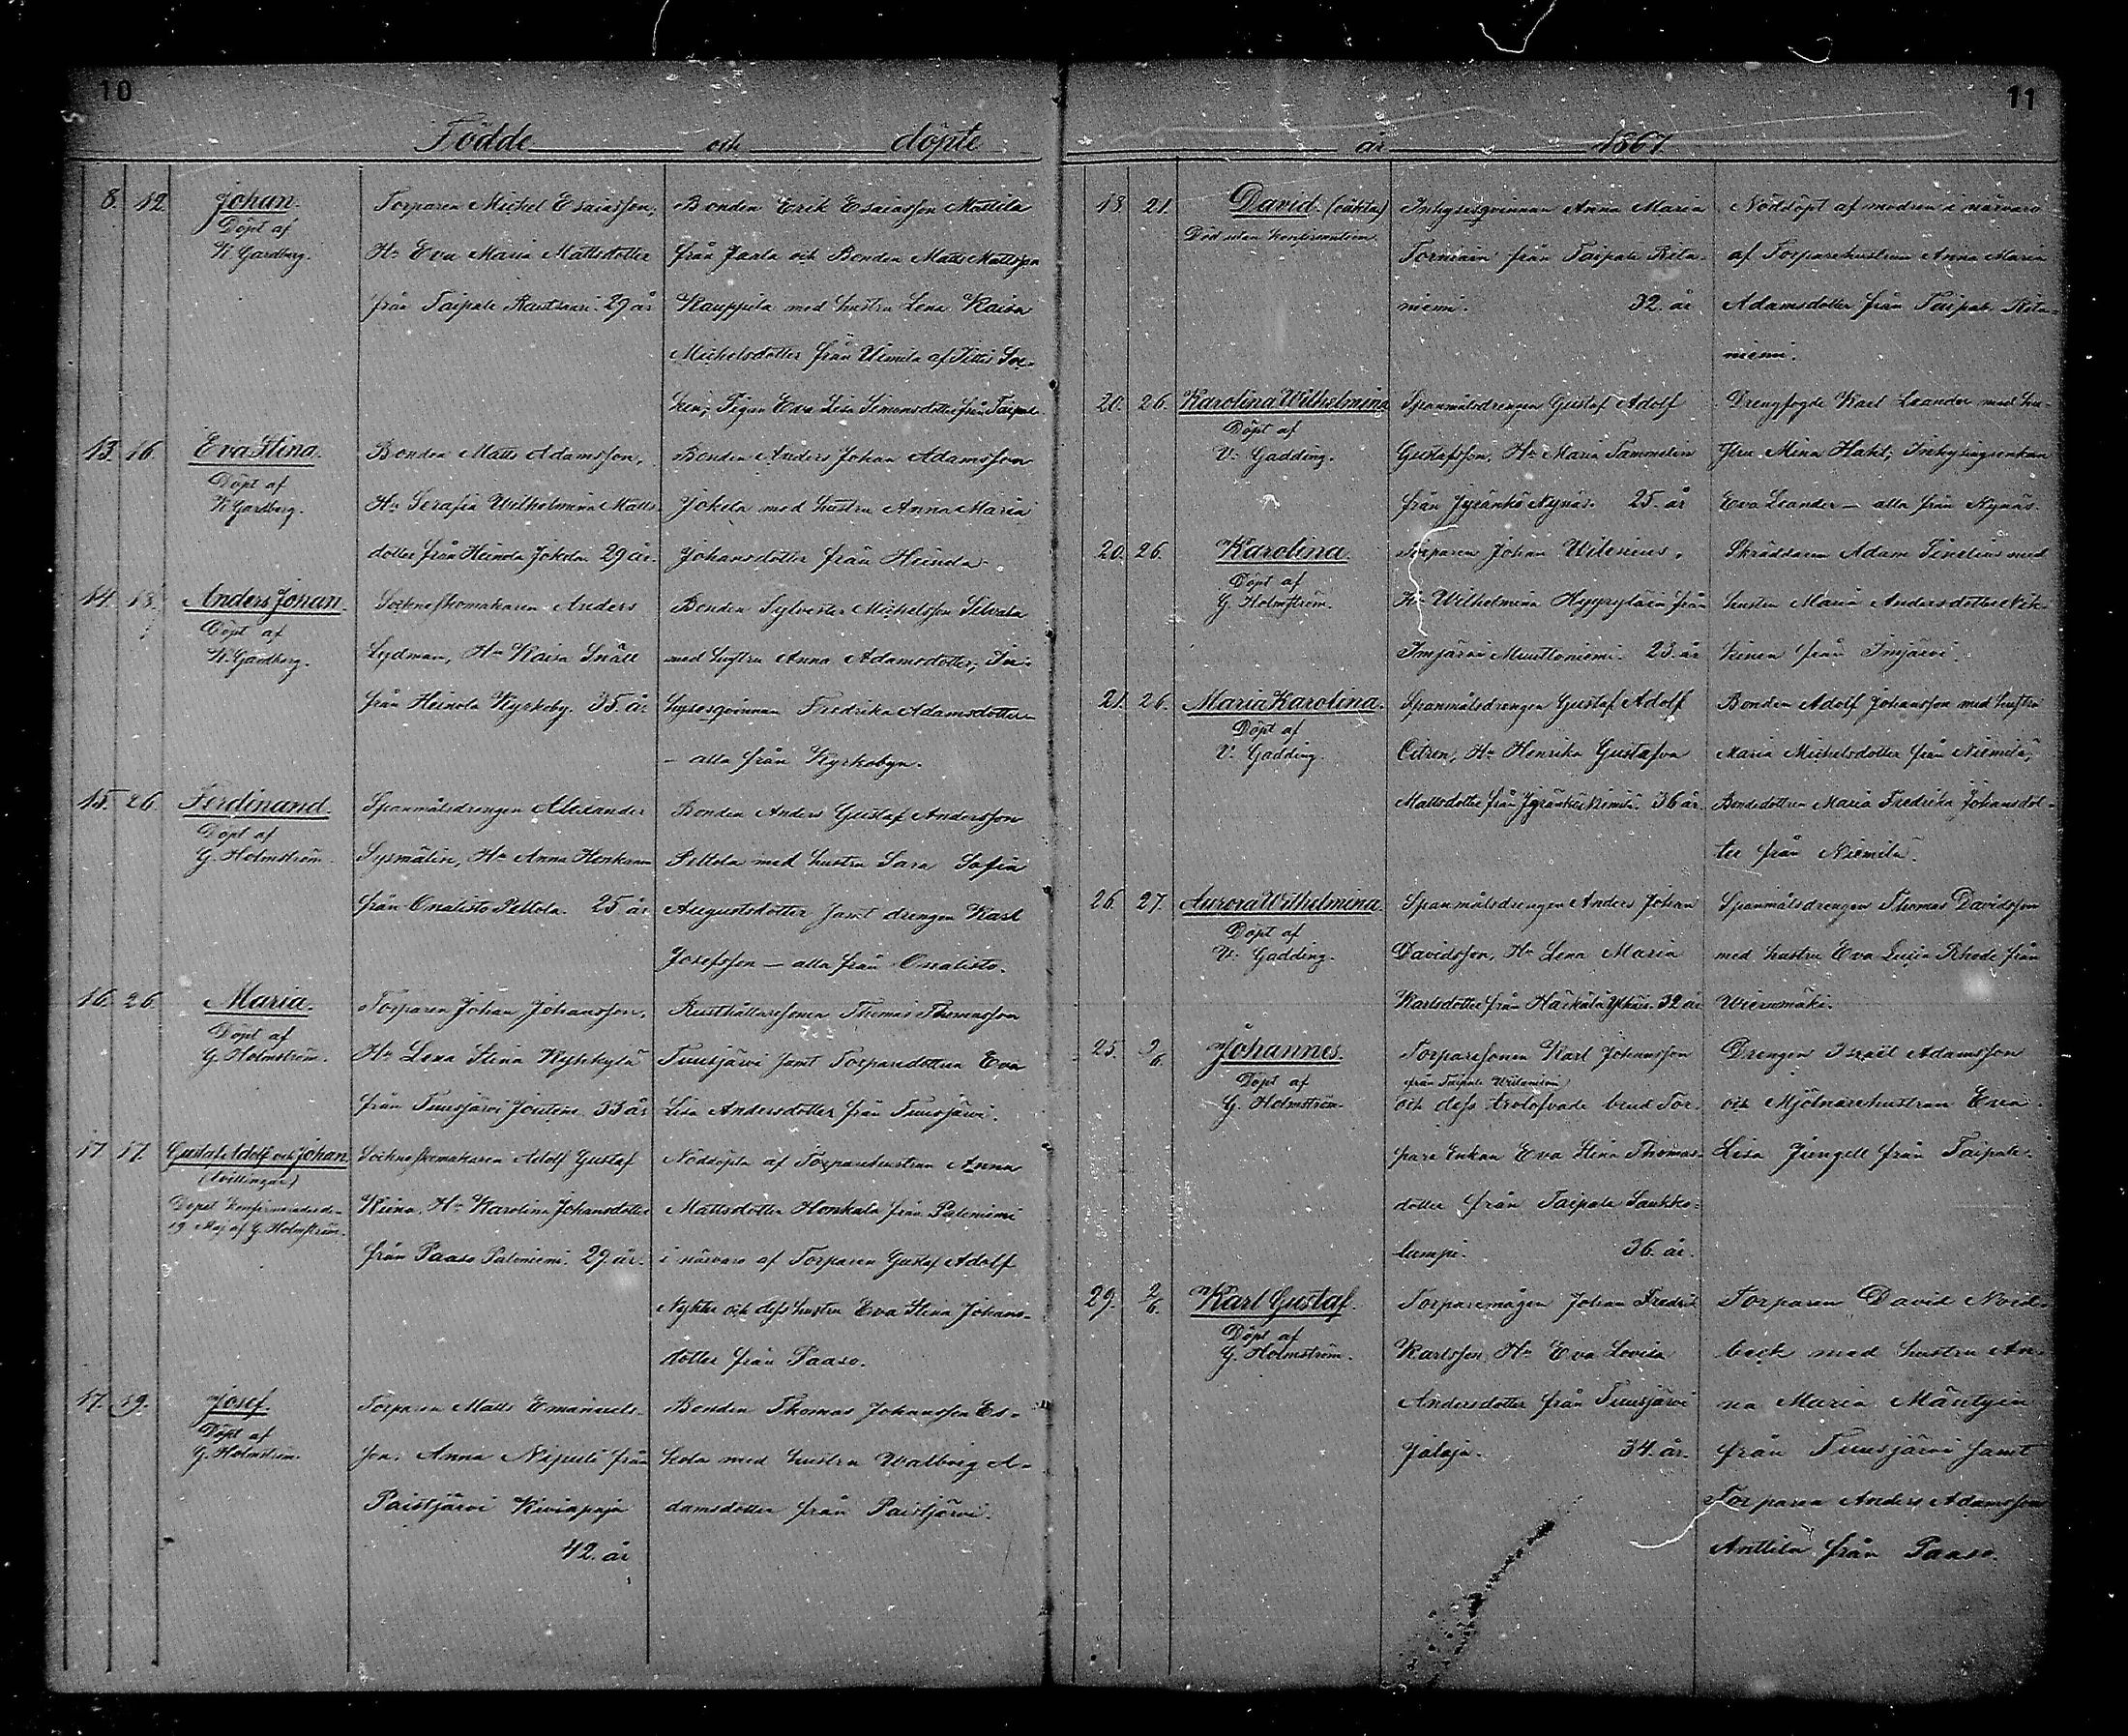 10
Födde och döpte
8. 12. Johan.
Döpt af
K. Gardberg.
Torparen Michel Esaiasson,
Hu Eva Maria Mattsdotter
från Taipale Rautsaari. 29 år
Bonden Erik Esaiasson Mattila
från Jaala och Bonden Matts Mattsson
Kauppila med hustru Lena Kaisa
Michelsdotter från Uimila af Soc-
ken; Pigan Eva Lisa Simonsdotter från Taipale.
13. 16. Eva Stina.
Döpt af
K. Gardberg.
Bonden Matts Adamsson,
Hu Serafia Wilhelmina Matts-
dotter från Heinola Jokela. 29 år.
Bonden Anders Johan Adamsson
Jokela med hustru Anna Maria
Johansdotter från Heinola.
14. 18. Anders Johan.
Döpt af
K. Gardberg.
Sockneskomakaren Anders
Lydman, Hu Kaisa Snäll
från Heinola Kyrkoby. 35. år
Bonden Sylvester Michelsson
med hustru Anna Adamsdotter; In-
hysesqvinnan Fredrika Adamsdotter
– alla från Kyrkobyn.
15. 26. Ferdinand.
Döpt af
G. Holmström.
Spanmålsdrengen Alexander
Sysmälin, Hu Anna Honkanen
från Onalisto Peltola. 25 år
Bonden Anders Gustaf Andersson
Peltola med hustru Sara Sofia
Augustsdotter samt drengen Karl
Josefsson – alla från Onalisto.
16. 26. Maria.
Döpt af
G. Holmström.
Torparen Johan Johansson,
Hu Lena Stina
från Tuusjärvi Joutene. 33 år
Rusthållaresonen Thomas Thomasson
Tuusjärvi samt Torparedottren Eva
Lisa Andersdotter från Tuusjärvi.
17. 17. Gustaf Adolf och Johan.
(tvillingar)
Dopet konfirmerades den
19 Maj af G. Holmström.
Sockneskomakaren Adolf Gustaf
Hu Karolina Johansdotter
från Paaso Paloniemi. 29. år.
Nöddöpta af Torparehustrun Anna
Mattsdotter Honkala från Paloniemi
i närvaro af Torparen Gustaf Adolf
och dess hustru Eva Stina Johans-
dotter från Paaso.
17. 19. Josef.
Döpt af
G. Holmström.
Torparen Matts Emanuels-
son; Anna från
Paistjärvi Kiviapaja
42. år
Bonden Thomas Johansson Es-
kola med hustru Walborg A-
damsdotter från Paistjärvi.
11
år 1867
18. 21. David. (oäkta)
Död utan konfirmation
Inhysesqvinnan Anna Maria
Torniain från Taipale Rita-
niemi. 32. år
Nöddöpt af modren i närvaro
af Torparehustrun Anna Maria
Adamsdotter från Taipale Rita-
niemi.
20. 26. Karolina Wilhelmina
Döpt af
V. Gadding.
Spanmålsdrengen Gustaf Adolf
Gustafsson, Hu Maria Sammelin
från Jyränkö Nynäs. 25. år
Drengfogde Karl Leander med hu-
stru Mina Hahl; Inhysingsenkan
Eva Leander – alla från Nynäs.
20. 26. Karolina.
Döpt af
G. Holmström.
Torparen Johan Wilenius,
Hu Wilhelmina Hyyryläin från
Imjärvi Mustloniemi. 23. år
Skräddaren Adam Sinelius med
hustru Maria Andersdotter
från Imjärvi.
21. 26. Maria Karolina.
Döpt af
V. Gadding.
Spanmålsdrengen Gustaf Adolf
Citren, Hu Henrika Gustafva
Mattsdotter från Jyränkö Niemilä. 36 år.
Bonden Adolf Johansson med hustru
Maria Michelsdotter från Niemilä;
Bondedottren Maria Fredrika Johansdot-
ter från Niemilä.
26. 27. Aurora Wilhelmina.
Döpt af
V. Gadding.
Spanmålsdrengen Anders Johan
Davidsson, Hu Lena Maria
Karlsdotter från Härkälä 32 år
Spanmålsdrengen Thomas Davidsson
med hustru Eva Rhode från
Wierumäki.
25. 2/6. Johannes.
Döpt af
G. Holmström.
Torparesonen Karl Johansson
från Taipale
och dess trolofvade brud Tor-
pare Enkan Eva Stina Thomas-
dotter från Taipale Saukko-
lampi. 36. år.
Drengen Israël Adamsson
och Mjölnarehustrun Eva
Lisa Jungell från Taipale.
29. 2/6. Karl Gustaf.
Döpt af
G. Holmström.
Torparemågen Johan Fredrik
Karlsson, Hu Eva Lovisa
Andersdotter från Tuusjärvi
34. år.
Torparen David Nord-
beck med hustru An-
na Maria Mäntyin
från Tuusjärvi samt
Torparen Anders Adamsson
Anttila från Paaso.